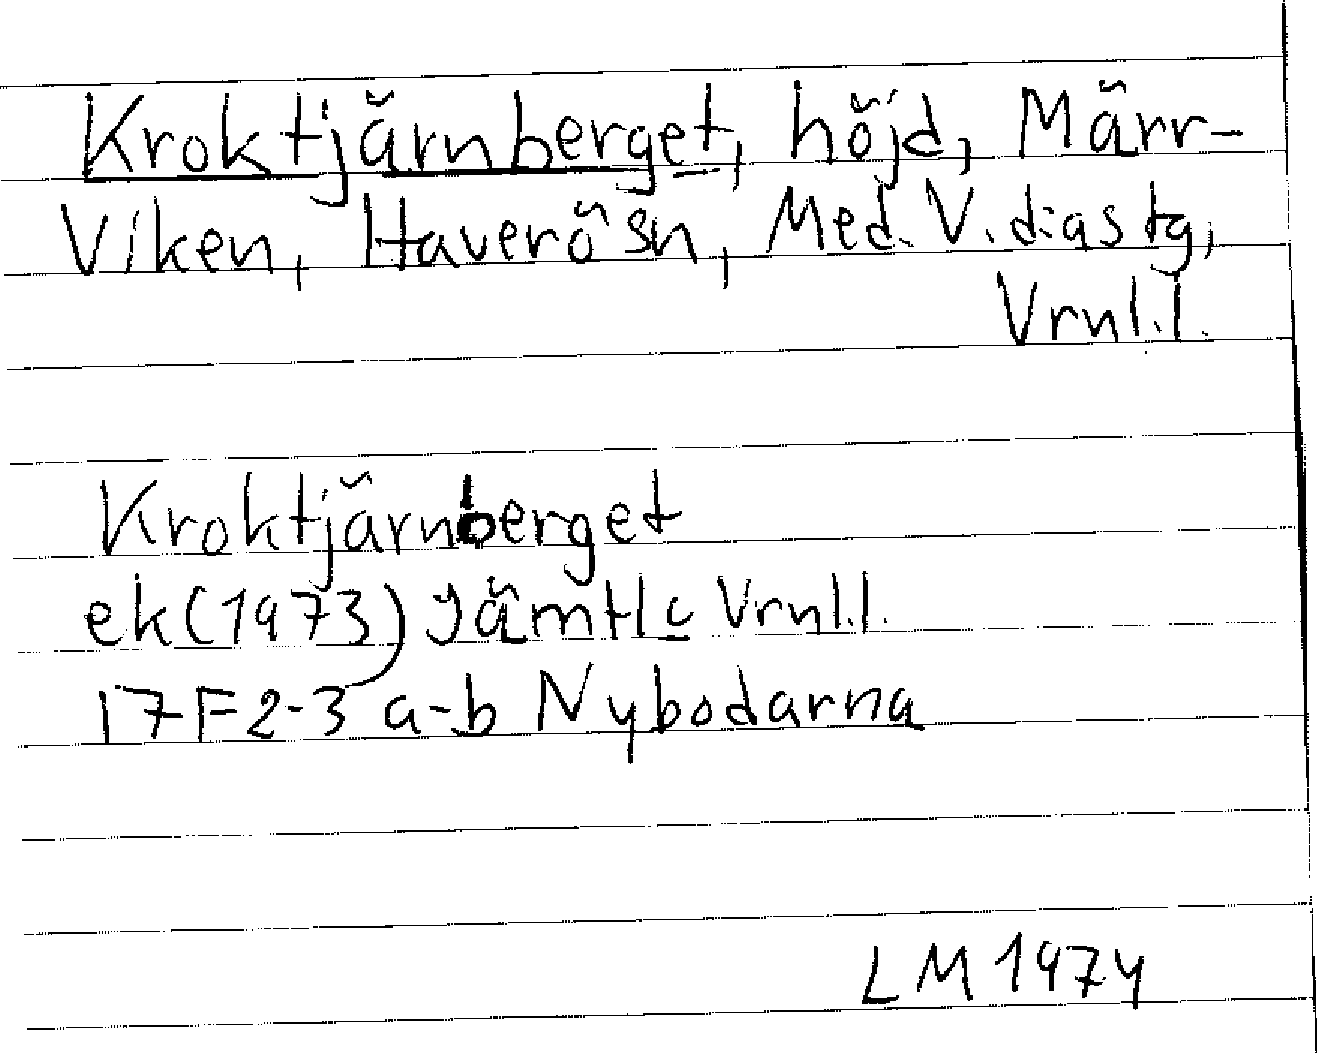 Kroktjärnberget, höjd, Märr-
Viken, Haverö sn, Med. V. d:gs tg,
Vrnl.l.
Kroktjärnberget
ek(1973) Jämtl c Vrnl.l.
17F2-3 a-b Nybodarna
LM 1974